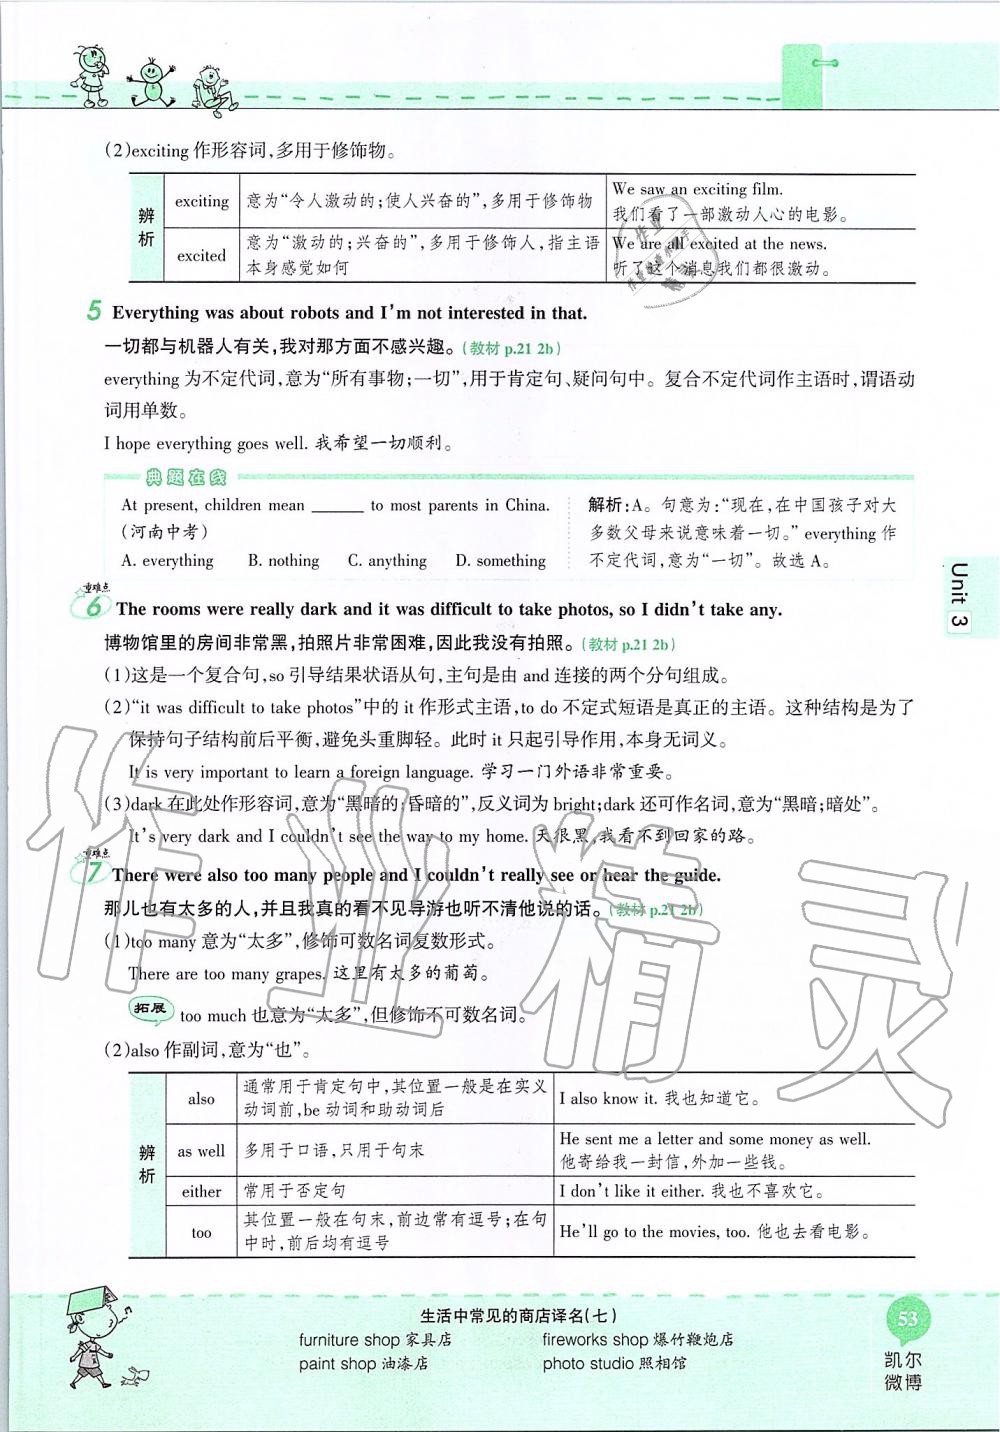 (2)exciting 作形容词,多用于修饰物。
辨析
exciting 意为“令人激动的;使人兴奋的”,多用于修饰物 We saw an exciting film.
我们看了一部激动人心的电影。
excited 意为“激动的;兴奋的”,多用于修饰人,指主语
本身感觉如何 We are all excited at the news.
听了这个消息我们都很激动。
5 Everything was about robots and I'm not interested in that.
一切都与机器人有关,我对那方面不感兴趣。(教材 p.21 2b)
everything 为不定代词,意为“所有事物;一切”,用于肯定句、疑问句中。复合不定代词作主语时,谓语动
词用单数。
I hope everything goes well. 我希望一切顺利。
典题在线
At present, children mean ______ to most parents in China.
(河南中考)
A. everything B. nothing C. anything D. something
解析:A。句意为:“现在,在中国孩子对大
多数父母来说意味着一切。” everything 作
不定代词,意为“一切”。故选 A。
重难点
6 The rooms were really dark and it was difficult to take photos, so I didn't take any.
博物馆里的房间非常黑,拍照片非常困难,因此我没有拍照。(教材 p.21 2b)
(1)这是一个复合句,so 引导结果状语从句,主句是由 and 连接的两个分句组成。
(2)“it was difficult to take photos”中的 it 作形式主语,to do 不定式短语是真正的主语。这种结构是为了
保持句子结构前后平衡,避免头重脚轻。此时 it 只起引导作用,本身无词义。
It is very important to learn a foreign language. 学习一门外语非常重要。
(3)dark 在此处作形容词,意为“黑暗的;昏暗的”,反义词为 bright;dark 还可作名词,意为“黑暗;暗处”。
It's very dark and I couldn't see the way to my home. 天很黑,我看不到回家的路。
重难点
7 There were also too many people and I couldn't really see or hear the guide.
那儿也有太多的人,并且我真的看不见导游也听不清他说的话。(教材 p.21 2b)
(1)too many 意为“太多”,修饰可数名词复数形式。
There are too many grapes. 这里有太多的葡萄。
拓展 too much 也意为“太多”,但修饰不可数名词。
(2)also 作副词,意为“也”。
辨析
also 通常用于肯定句中,其位置一般是在实义
动词前,be 动词和助动词后 I also know it. 我也知道它。
as well 多用于口语,只用于句末 He sent me a letter and some money as well.
他寄给我一封信,外加一些钱。
either 常用于否定句 I don't like it either. 我也不喜欢它。
too 其位置一般在句末,前边常有逗号;在句
中时,前后均有逗号 He'll go to the movies, too. 他也去看电影。
Unit 3
作业精灵
生活中常见的商店译名(七)
furniture shop 家具店 fireworks shop 爆竹鞭炮店
paint shop 油漆店 photo studio 照相馆
53
凯尔
微博